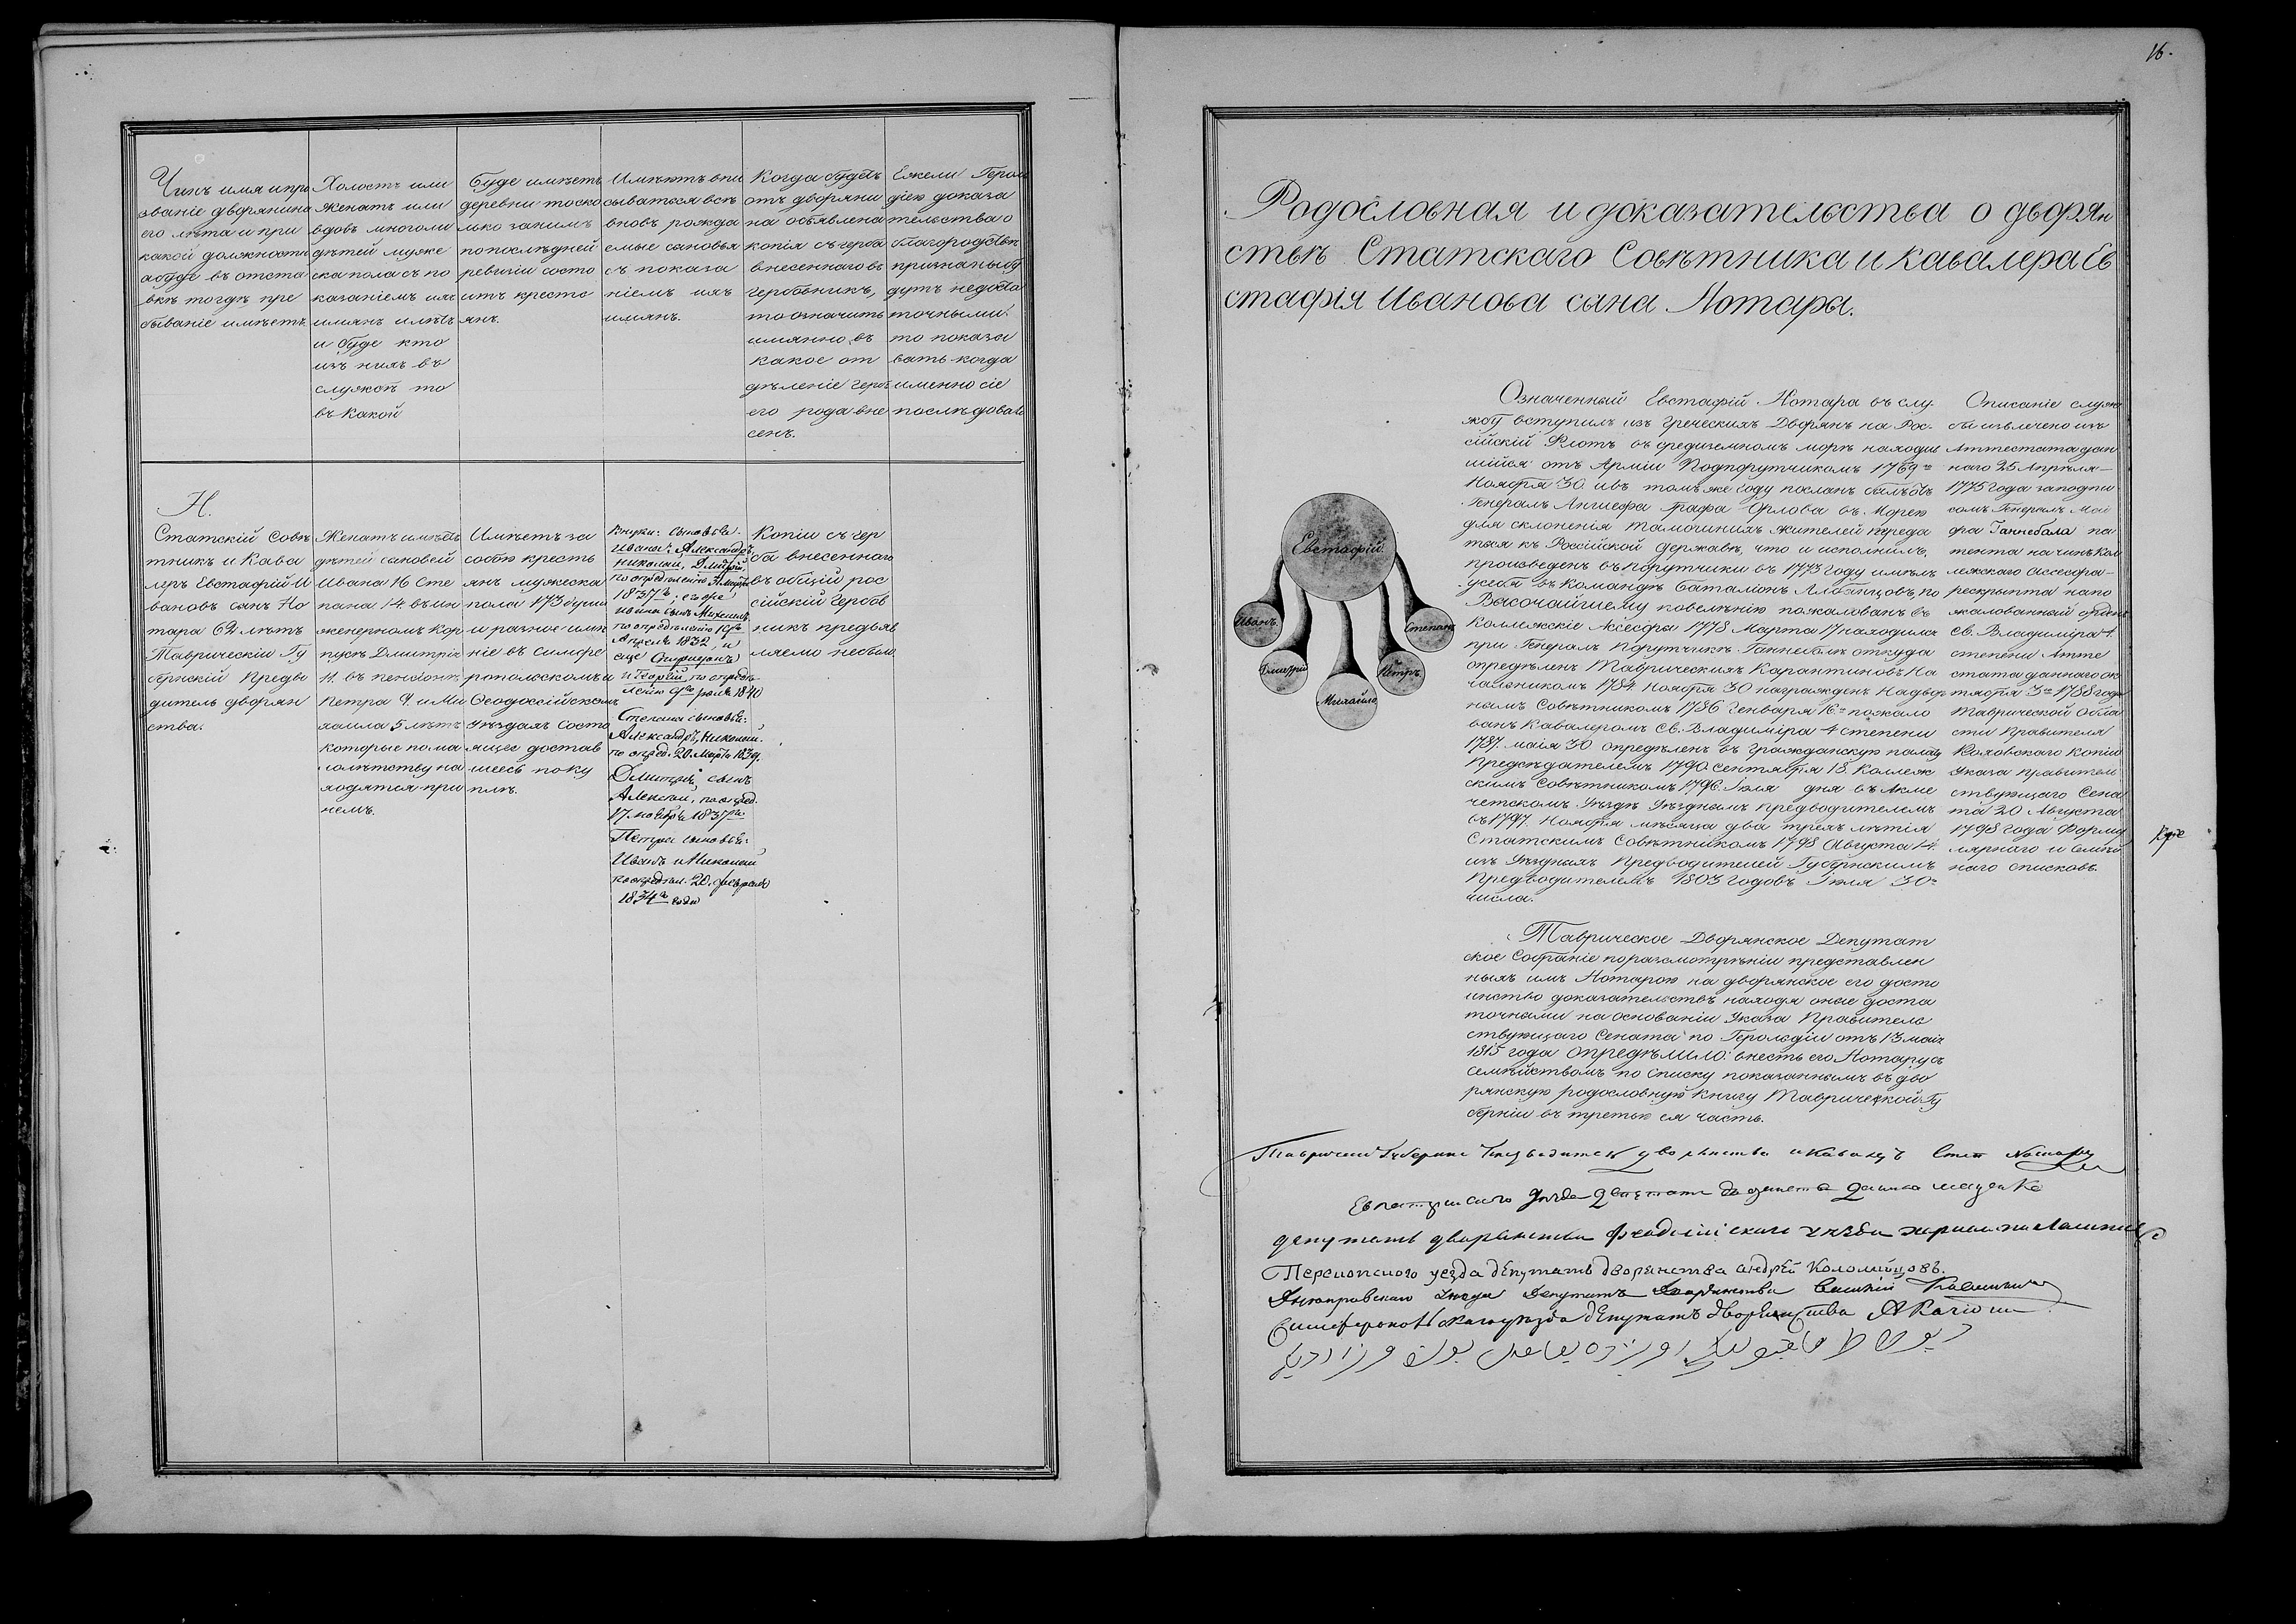 16.
Чинъ имя и про
званіе дворянина
его лѣта и при
какой должности
а буде въ отста
вкѣ то гдѣ пре
бываніе имѣетъ
Холостъ или
женатъ или
вдовъ многоли
дѣтей муже
ска пола съ по
казаніемъ ихъ
имянъ и лѣтъ
и буде кто
изъ нихъ въ
службѣ то
въ какой
Буде имѣетъ
деревни то ско
лько за нимъ
по послѣдней
ревизіи состо
итъ кресть
янъ.
Имѣютъ впи
сываться всѣ
вновь рожда
емые сыновья
съ показа
ніемъ ихъ
имянъ.
Когда будетъ
отъ дворяни
на объявлена
копія съ герба
внесеннаго въ
гербовникъ,
то означить
имянно въ
какое от
дѣленіе герб
его рода вне
сенъ.
Ежели Герол
діею доказа
тельства о
благородствѣ
признаны бу
дутъ недоста
точными.
то показы
вать когда
именно сіе
послѣдовало
Н.
Статскій Совѣ
тникъ и Кава
леръ Евстафій И
вановъ сынъ Но
тара 62 лѣтъ
Таврическій Гу
бернскій Предво
дитель дворян
ства.
Женатъ имѣетъ
дѣтей сыновей
Ивана 16 Сте
пана 14. въ ин
женерномъ кор
пусѣ Дмитрія
11. въ пенсіонѣ
Петра 9. и Ми
хаила 5 лѣтъ
которые по ма
лолѣтству на
ходятся при
немъ.
Имѣетъ за
собою кресть
янъ мужеска
пола 173 души
и разное имѣ
ніе въ Симфе
ропольскомъ и
Ѳеодосійскомъ
уѣздахъ состо
ящее достав
шеесь поку
пкѣ.
Внуки: сыновья
Ивана: Александръ,
Николай, Дмитрій,
по опредѣленію
1837го; его же
Ивана сынъ Михаилъ,
по опредѣленію
Апрѣля 1832, и
еще Спиридонъ
и Георгій, по опредѣ-
Степана сыновья:
Александръ, Николай.
по опред. 20. Марта 1839.
Дмитрія сынъ
Алексѣй, по опред.
17. ноября 1837го
Петра сыновья:
Иванъ и Николай
по опредѣл. 20. февраля
1834го года
Копіи съ гер
ба внесеннаго
въ общій рос
сійскій Гербов
никъ предъяв
ляемо небыло
Родословная и доказательства о дворян
ствѣ Статскаго Совѣтника и кавалера Ев
стафія Иванова сына Нотары.
Евстафій
Иванъ
Дмитрій
Михайло
Петръ
Степанъ
Означенный Евстафій Нотара въ слу
жбу вступилъ изъ Греческихъ Дворянъ на Рос
сійскій Флотъ въ средиземномъ морѣ находив
шійся отъ Арміи Подпорутчикомъ 1769го
Ноября 30. и въ томъ же году посланъ былъ отъ
Генералъ Аншефа Графа Орлова въ Морею
для склоненія тамошнихъ жителей преда
ться къ Россійской державѣ, что и исполнилъ,
произведенъ въ порутчики въ 1773 году имѣлъ
у себя въ командѣ Баталіонъ Албанцовъ, по
Высочайшему повелѣнію пожалованъ въ
Коллежскіе Ассесоры 1778 Марта 17 находился
при Генералъ Порутчикѣ Ганнебалѣ откуда
опредѣленъ Таврическихъ Карантиновъ На
чальникомъ 1784 Ноября 30 награжденъ Надвор
нымъ Совѣтникомъ 1786 Генваря 16го пожало
ванъ Кавалеромъ Св. Владиміра 4 степени
1787. маія 30 опредѣленъ въ гражданскую палату
Предсѣдателемъ 1790 Сентября 18. Коллеж
скимъ Совѣтникомъ 1796. Іюля дня въ Акме
четскомъ Уѣздѣ Уѣзднымъ Предводителемъ
съ 1797. Ноября мѣсяца два трехъ лѣтія
Статскимъ Совѣтникомъ 1798 Августа 14.
изъ Уѣздныхъ Предводителей Губернскимъ
Предводителемъ 1803 годовъ Іюля 30го
числа.
Описаніе служ
бы извлечено изъ
Аттестата дан
наго 25 Апрѣля
1775 года за подпи
сомъ Генералъ Маі
ора Ганнебала па
тента на чинъ Кол
лежскаго Ассесора
рескрыпта на по
жалованный орденъ
Св. Владиміра 4.
степени Атте
стата даннаго ок
тября 3го 1788 года
Таврической обла
сти Правителя
Каховскаго Копіи
Указа Правитель
ствующаго Сена
та 20 Августа
1798 года Форму
лярнаго и имѣн
наго списковъ.
Таврическое Дворянское Депутат
ское Собраніе по разсмотрѣніи представлен
ныхъ имъ Нотарою на дворянское его досто
инство доказательствъ находя оные доста
точными на основаніи Указа Правитель
ствующаго Сената по Герольдіи отъ 13 маія
1815 года опредѣлило: внесть его Нотару съ
семѣйствомъ по списку показаннымъ въ дво
рянскую родословную книгу Таврической Гу
берніи въ третью ея часть.
дворянства и Кавалеръ Нотара
депутатъ дворянства уѣзда
Перекопского уезда депутатъ дворянства андрей Коломийцовъ.
Днепровскаго уезда Депутатъ Дворянства
Симферопольскаго уезда депутатъ дворянства